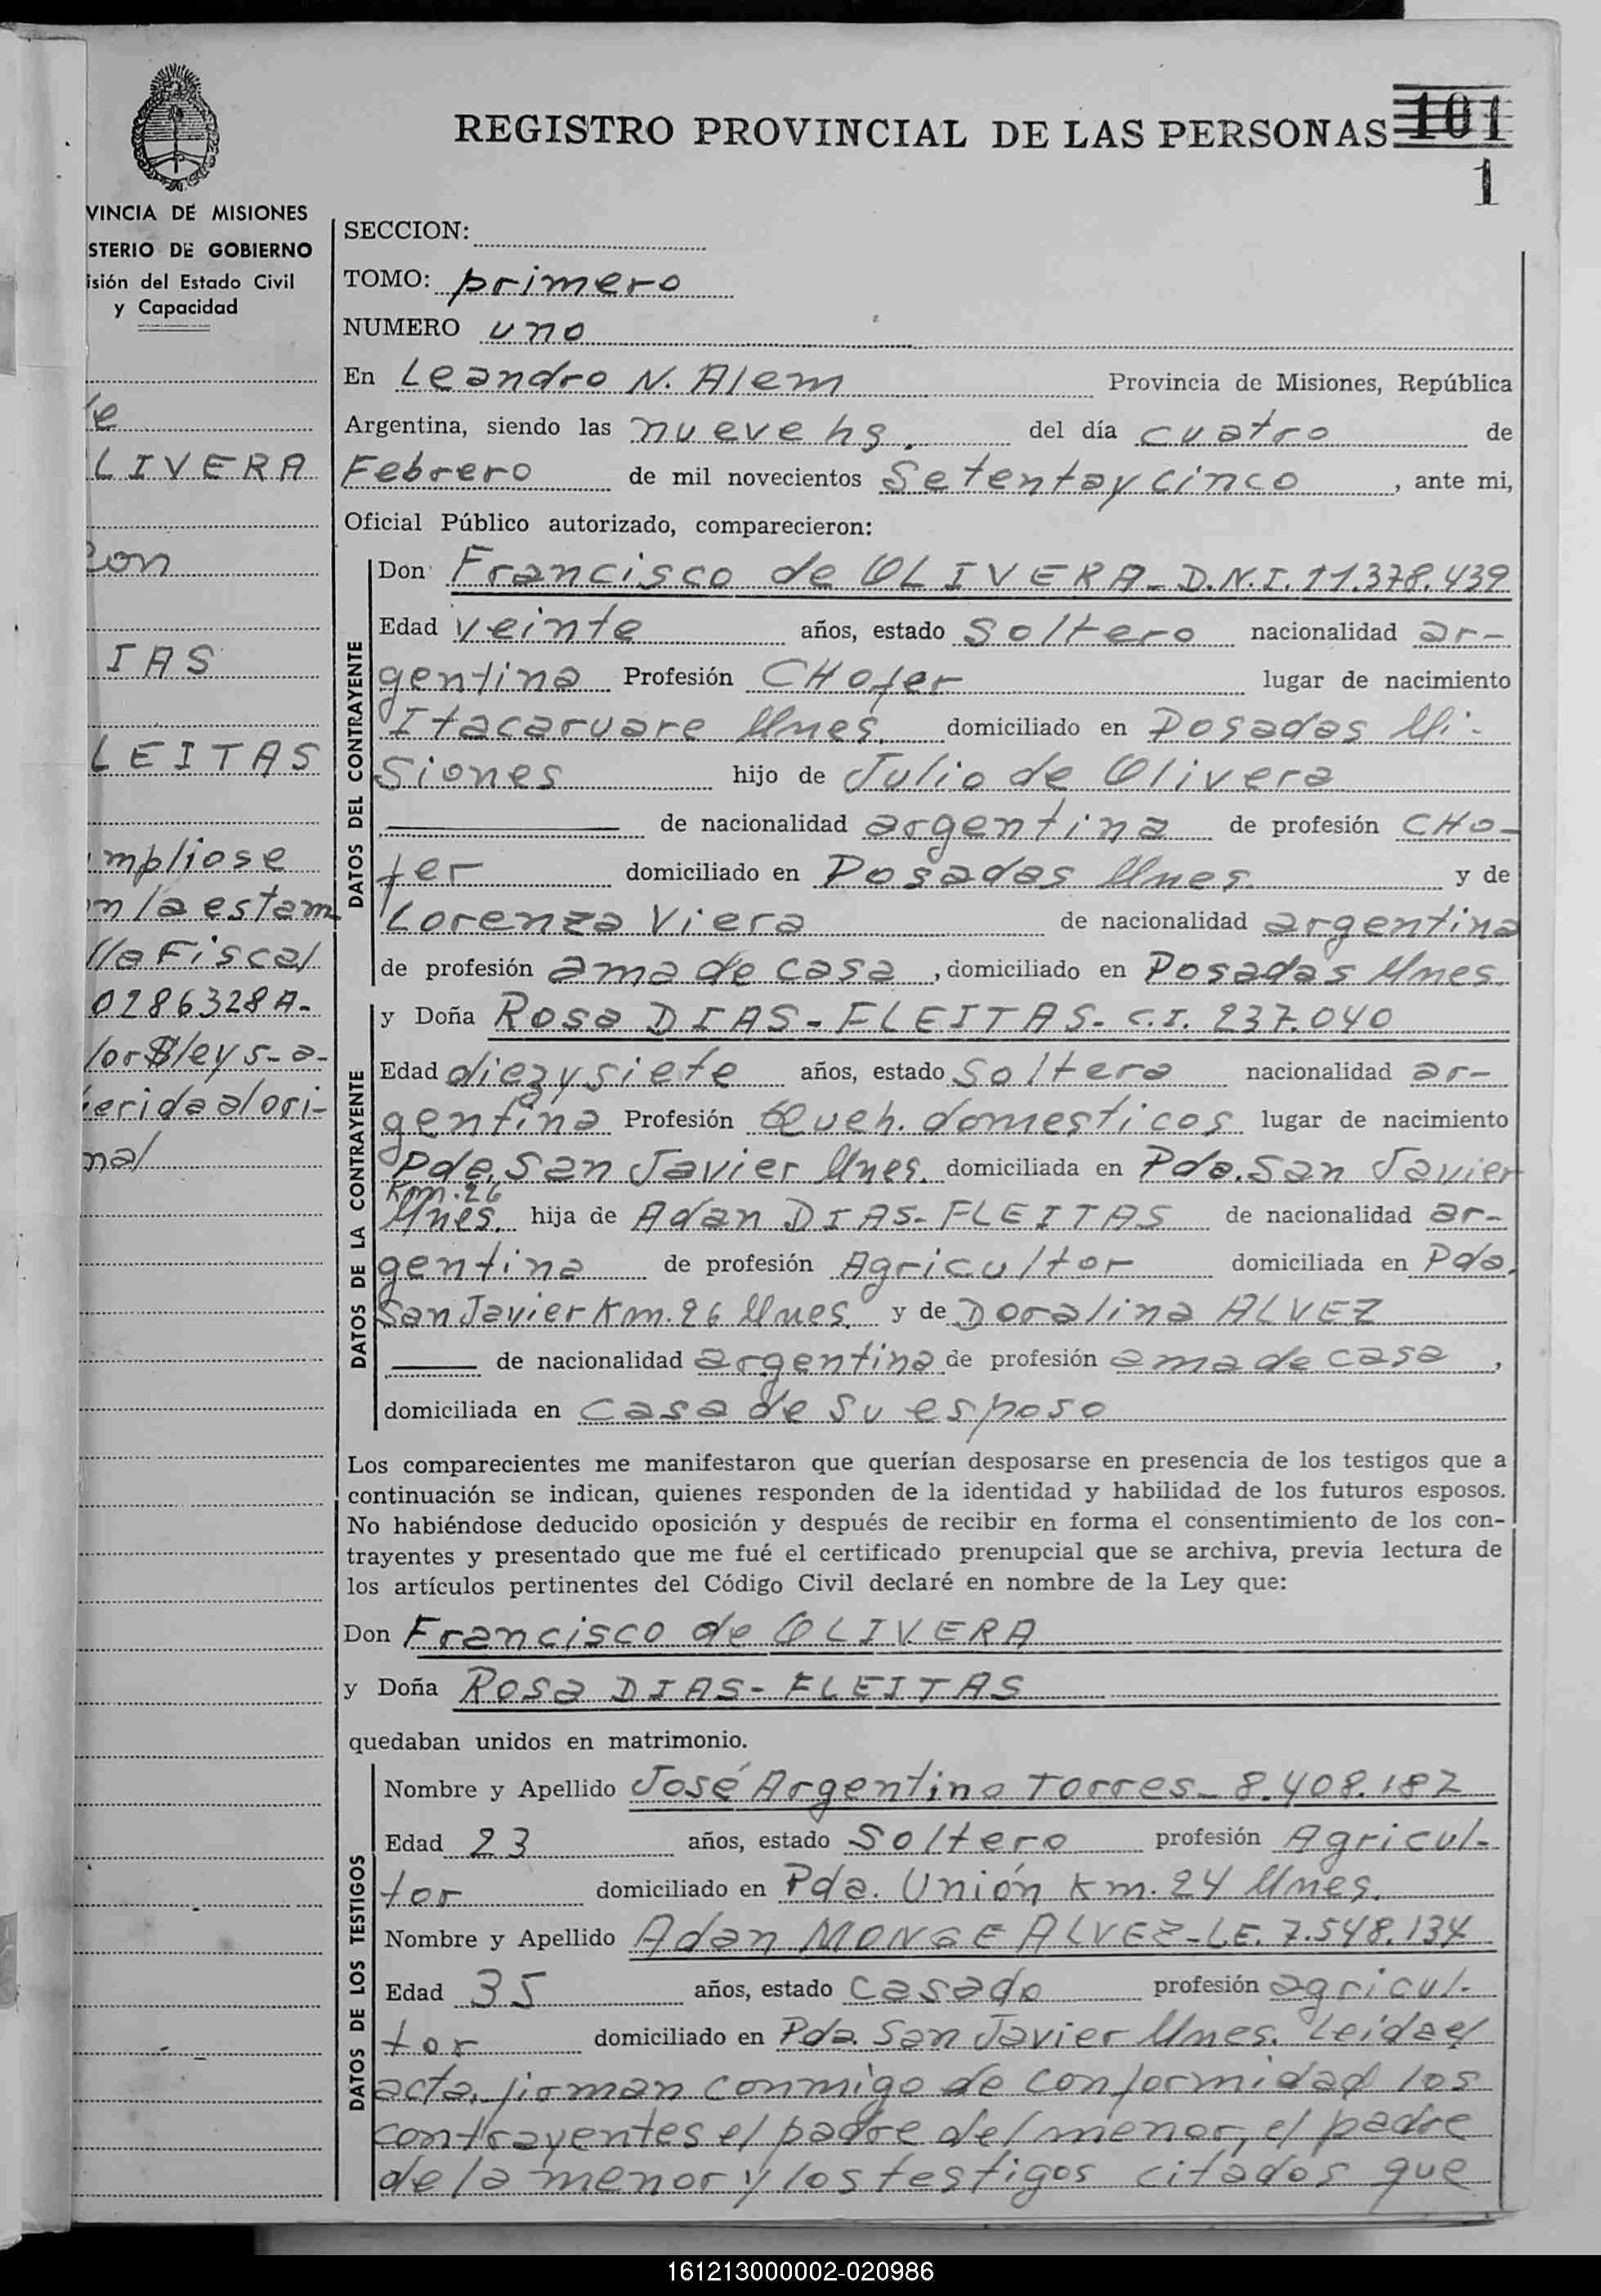 REGISTRO PROVINCIAL DE LAS PERSONAS 101
1
VINCIA DE MISIONES
STERIO DE GOBIERNO
isión del Estado Civil
y Capacidad
e
LIVERA
con
IAS
LEITAS
mpliose
n la estam
lla Fiscal
0286328A-
lor $ ley s-a-
erida al ori-
nal
SECCION:
TOMO: primero
NUMERO uno
En Leandro N. Alem Provincia de Misiones, República
Argentina, siendo las nueve hs. del día cuatro de
Febrero de mil novecientos Setenta y cinco, ante mi,
Oficial Público autorizado, comparecieron:
DATOS DEL CONTRAYENTE
Don Francisco de OLIVERA - D.N.I. 11.378.439
Edad veinte años, estado soltero nacionalidad ar-
gentina Profesión CHofer lugar de nacimiento
Itacaruare Mnes. domiciliado en Posadas Mi-
siones hijo de Julio de Olivera
de nacionalidad argentina de profesión CHo-
fer domiciliado en Posadas Mnes. y de
Lorenza Viera de nacionalidad argentina
de profesión ama de casa, domiciliado en Posadas Mnes.
DATOS DE LA CONTRAYENTE
y Doña Rosa DIAS-FLEITAS- C.I. 237.040
Edad diez y siete años, estado Soltera nacionalidad ar-
gentina Profesión Queh. domesticos lugar de nacimiento
Pda. San Javier Mnes. domiciliada en Pda. San Javier
Km. 26
Mnes. hija de Adan DIAS-FLEITAS de nacionalidad ar-
gentina de profesión Agricultor domiciliada en Pda.
San Javier Km. 26 Mnes. y de Doralina ALVEZ
de nacionalidad argentina de profesión ama de casa,
domiciliada en casa de su esposo
Los comparecientes me manifestaron que querían desposarse en presencia de los testigos que a
continuación se indican, quienes responden de la identidad y habilidad de los futuros esposos.
No habiéndose deducido oposición y después de recibir en forma el consentimiento de los con-
trayentes y presentado que me fué el certificado prenupcial que se archiva, previa lectura de
los artículos pertinentes del Código Civil declaré en nombre de la Ley que:
Don Francisco de OLIVERA
y Doña Rosa DIAS-FLEITAS
quedaban unidos en matrimonio.
DATOS DE LOS TESTIGOS
Nombre y Apellido José Argentino Torres- 8.408.187
Edad 23 años, estado Soltero profesión Agricul-
tor domiciliado en Pda. Unión Km. 24 Mnes.
Nombre y Apellido Adan MONGE ALVEZ-L.E. 7.548.134
Edad 35 años, estado casado profesión agricul-
tor domiciliado en Pda. San Javier Mnes. Leida el
acta, firman conmigo de conformidad los
contrayentes el padre del menor, el padre
de la menor y los testigos citados que
161213000002-020986